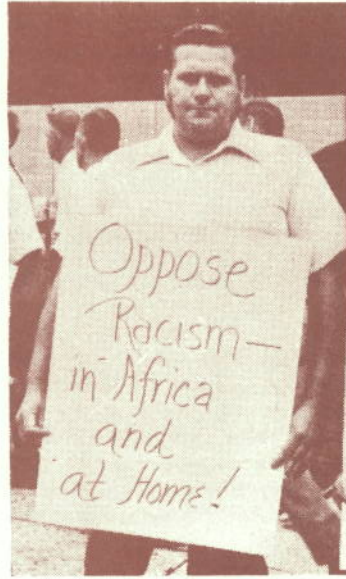 Oppose
Racism—
in Africa
and
at Home!